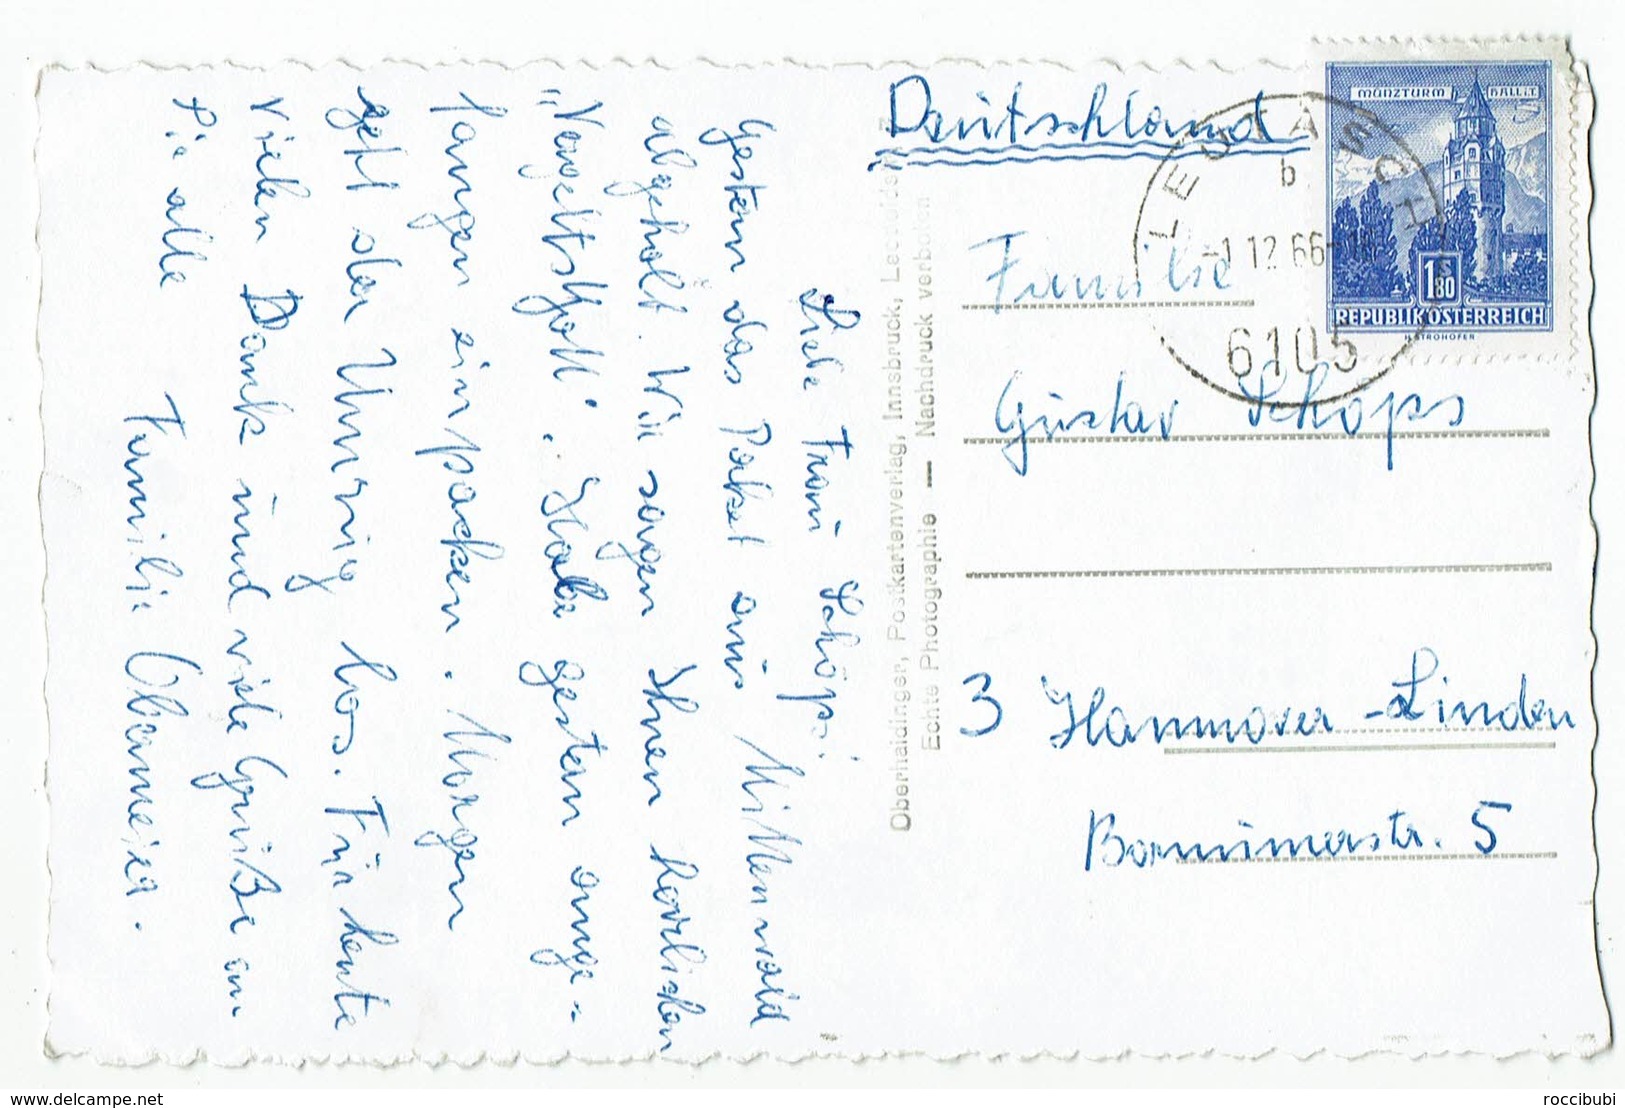 Liebe Frau Schöps!
Gestern das Paket aus Mittenwald
abgeholt. Wir sagen Ihnen herzlichen
"Vergeltsgott". Habe gestern ange-
fangen einpacken. Morgen
geht der Umzug los. Für heute
vielen Dank und viele Grüße an
Sie alle
Familie Obermeier.
Oberhaidinger, Postkartenverlag, Innsbruck,
Echte Photographie — Nachdruck verboten
Deutschland
MÜNZTURM HALL i.T.
1 S 80
REPUBLIK ÖSTERREICH
LEUTASCH
b
-1.12.66-
6105
Familie
Gustav Schöps
3 Hannover-Linden
Bornimerstr. 5
delcampe.net
roccibubi